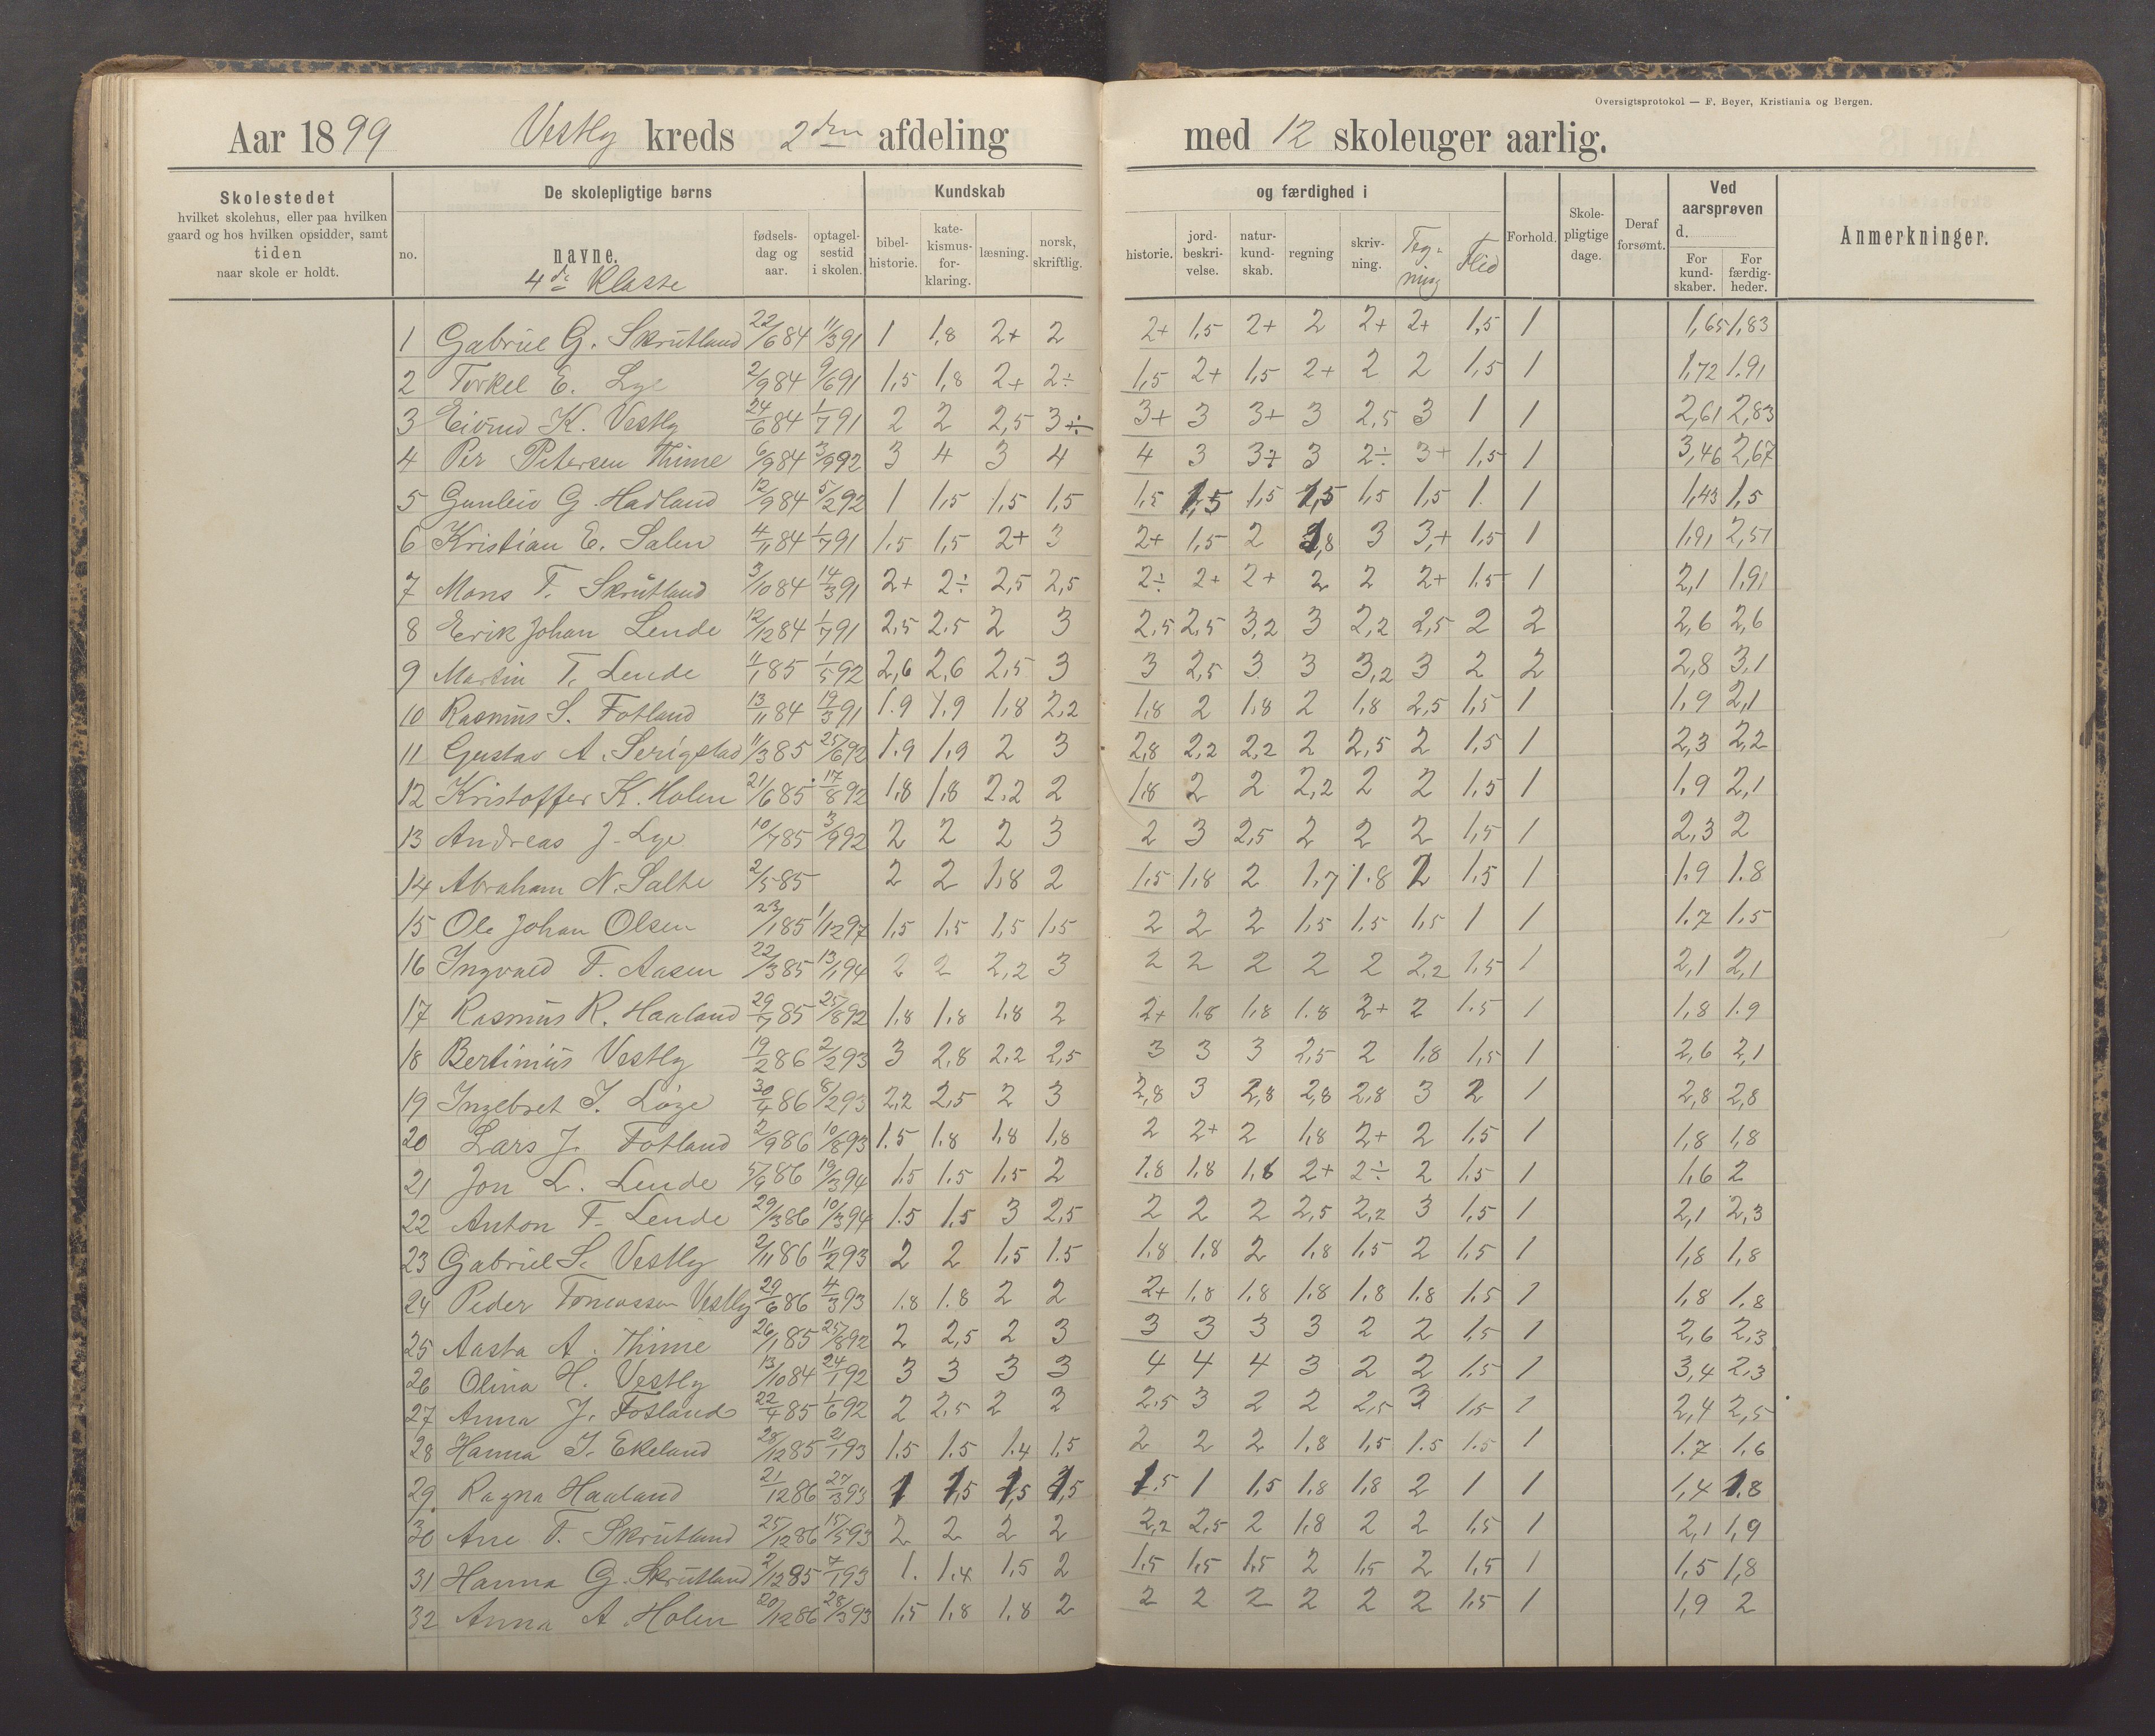 Oversigtsprotokol — F. Beyer, Kristiania og Bergen.
Aar 1899 Vestly kreds 2den afdeling med 12 skoleuger aarlig.
Skolestedet hvilket skolehus, eller paa hvilken gaard og hos hvilken opsidder, samt tiden naar skole er holdt.
De skolepligtige børns
no. navne. fødsels-dag og aar. optagel-sestid i skolen.
4de Klasse
Kundskab og færdighed i
bibel-historie. kate-kismus-for-klaring. læsning. norsk, skriftlig. historie. jord-beskri-velse. natur-kund-skab. regning skriv-ning. Teg-ning Flid
Forhold. Skole-pligtige dage. Deraf forsømt.
Ved aarsprøven d. For kund-skaber. For færdig-heder.
Anmerkninger.
1 Gabriel G. Skrutland 22/6 84 11/3 91 1 1,8 2+ 2 2+ 1,5 2+ 2 2+ 2+ 1,5 1 1,65 1,83
2 Torkel E. Lye 2/9 84 9/6 91 1,5 1,8 2+ 2÷ 1,5 2+ 1,5 2+ 2 2 1,5 1 1,72 1.91
3 Eivind K. Vestly 24/6 84 1/7 91 2 2 2,5 3÷ 3+ 3 3+ 3 2,5 3 1 1 2,61 2,83
4 Per Petersen Thime 6/9 84 3/9 92 3 4 3 4 4 3 3+ 3 2÷ 3+ 1,5 1 3,46 2,67
5 Gunleiv G. Hadland 12/9 84 5/2 92 1 1,5 1,5 1,5 1,5 1,5 1,5 1,5 1,5 1,5 1. 1 1,43 1,5
6 Kristian E. Salen 4/11 84 1/7 91 1.5 1,5 2+ 3 2+ 1,5 2 1,8 3 3,+ 1,5 1 1,91 2,51
7 Mons T. Skrutland 3/10 84 14/3 91 2+ 2÷ 2,5 2,5 2÷ 2+ 2+ 2 2 2+ 1.5 1 2,1 1,91
8 Erik Johan Lende 12/12 84 1/7 91 2,5 2.5 2 3 2.5 2,5 3,2 3 2,2 2,5 2 2 2,6 2,6
9 Martin T. Lende 11/1 85 1/5 92 2,6 2,6 2,5 3 3 2,5 3 3 3,2 3 2 2 2,8 3,1
10 Rasmus S. Fotland 13/11 84 19/3 91 1.9 1,9 1,8 2,2 1,8 2 1,8 2 1,8 2,5 1,5 1 1,9 2,1
11 Gustav A. Serigstad 11/3 85 25/6 92 1.9 1,9 2 3 2,8 2,2 2,2 2 2,5 2 1,5 1 2,3 2,2
12 Kristoffer K. Holen 21/6 85 17/8 92 1,8 1,8 2,2 2 1,8 2 2 2,2 2 2 1,5 1 1,9 2,1
13 Andreas J. Lye 10/7 85 3/9 92 2 2 2 3 2 3 2,5 2 2 2 1,5 1 2,3 2
14 Abraham N. Salte 2/5 85 2 2 1,8 2 1,5 1,8 2 1,7 1.8 2 1,5 1 1.9 1.8
15 Ole Johan Olsen 23/1 85 1/12 97 1,5 1,5 1,5 1,5 2 2 2 1,5 1,5 1,5 1 1 1.7 1.5
16 Ingvald T. Aasen 22/3 85 13/1 94 2 2 2,2 3 2 2 2 2 2 2,2 1,5 1 2,1 2,1
17 Rasmus R. Haaland 29/7 85 25/8 92 1.8 1.8 1.8 2 2+ 1.8 1,8 1.8 2+ 2 1.5 1 1,8 1.9
18 Bertinius Vestly 19/2 86 2/2 93 3 2,8 2.2 2,5 3 3 3 2,5 2 1,8 1,5 1 2,6 2,1
19 Ingebret I. Löge 30/4 86 8/2 93 2,2 2,5 2 3 2,8 3 2,8 2,8 2,8 3 2 1 2,8 2,8
20 Lars J. Fotland 2/9 86 10/8 93 1.5 1.8 1,8 1,8 2 2+ 2 1,8 2+ 2 1,5 1 1,8 1,8
21 Jon L. Lende 5/9 86 19/3 94 1.5 1,5 1,5 2 1.8 1,8 1,6 2+ 2÷ 2 1.5 1 1,6 2
22 Anton T. Lende 29/3 86 10/3 94 1.5 1,5 3 2,5 2 2 2 2,5 2,2 3 1,5 1 2,1 2,3
23 Gabriel S. Vestly 2/11 86 11/2 93 2 2 1,5 1.5 1.8 1,8 2 1,8 1,5 2 1,5 1 1,8 1,8
24 Peder Tonnassen Vestly 29/6 86 4/3 93 1.8 1.8 2 2 2+ 1,8 1.8 1,8 1.8 1,8 1,5 1 1,8 1.8
25 Aasta A. Thime 26/1 85 25/8 92 2 2,5 2 3 3 3 3 3 2 2 1,5 1 2,6 2,3
26 Olina H. Vestly 13/10 84 24/1 92 3 3 3 3 4 4 4 3 2 2 1,5 1 3,4 2,3
27 Anna J. Fotland 22/4 85 1/6 92 2 2,5 2 2 2.5 3 2 2 2,5 3 1,5 1 2,4 2,5
28 Hanna I. Ekeland 28/12 85 2/1 93 1.5 1.5 1.4 1,5 2 2 2 1,8 1,5 1.5 1.5 1 1.7 1.6
29. Ragna Haaland 21/12 86 27/3 93 1 1,5 1,5 1,5 1.5 1 1,5 1,8 1,8 2 1 1 1,4 1.8
30 Ane T. Skrutland 25/12 86 15/5 93 2 2 2 2 2,2 2,5 2 1,8 2 2 1,5 1 2,1 1,9
31 Hanna G. Skrutland 2/12 85 7/1 93 1. 1.4 1,5 2 1.5 1,5 1,5 2 1,5 2 1,5 1 1,5 1,8
32 Anna A. Holen 20/12 86 28/3 93 1,5 1,8 1,8 2 2 2 2 2 2 2 1,5 1 1,9 2